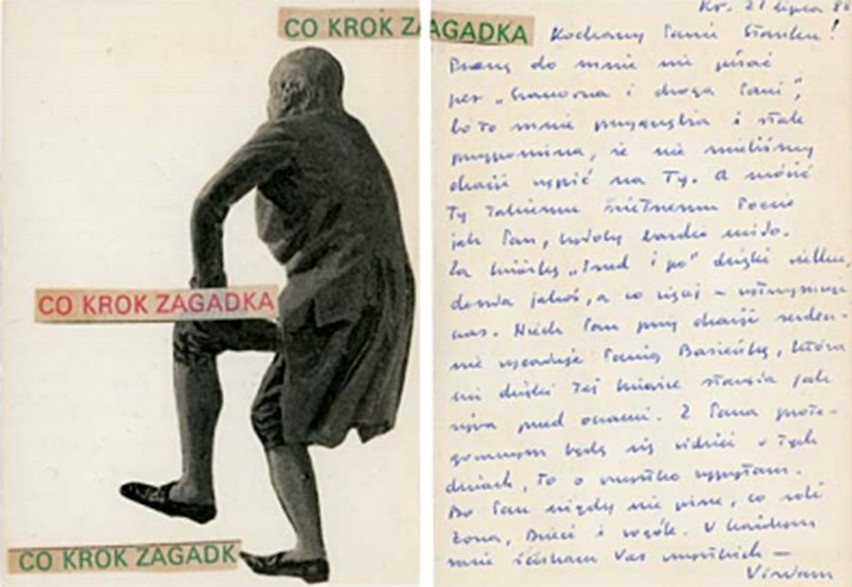 CO KROK ZAGADKA
CO KROK ZAGADKA
CO KROK ZAGADK
Kr. 21 lipca
Kochany Panie Stanku!
Proszę do mnie nie pisać
per „Szanowna i droga Pani”,
bo to mnie przygnębia i stale
przypomina, że nie mieliśmy
okazji wypić na Ty. A mówić
Ty takiemu świetnemu Poecie
jak Pan, byłoby bardzo miło.
Za książkę „Przed i po” dzięki wielkie,
jakoś, a co więcej –
nas. Niech Pan przy okazji serdecz-
nie Panią Basieńkę, która
mi dzięki tej książce stanęła jak
żywa przed oczami. Z Pana
będę się widzieć w tych
dniach, to o wszystko wypytam.
Bo Pan nigdy nie pisze, co robi
żona, Dzieci i wogóle. W każdym
razie ściskam Was wszystkich –